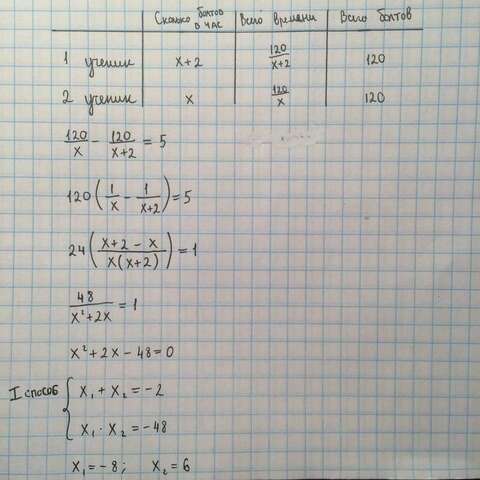 Сколько болтов в час Всего времени Всего болтов
1 ученик x+2 120/(x+2) 120
2 ученик x 120/x 120
120/x - 120/(x+2) = 5
120(1/x - 1/(x+2)) = 5
24((x+2-x)/(x(x+2))) = 1
48/(x²+2x) = 1
x²+2x-48=0
I способ { x₁+x₂=-2
x₁·x₂=-48
x₁=-8; x₂=6